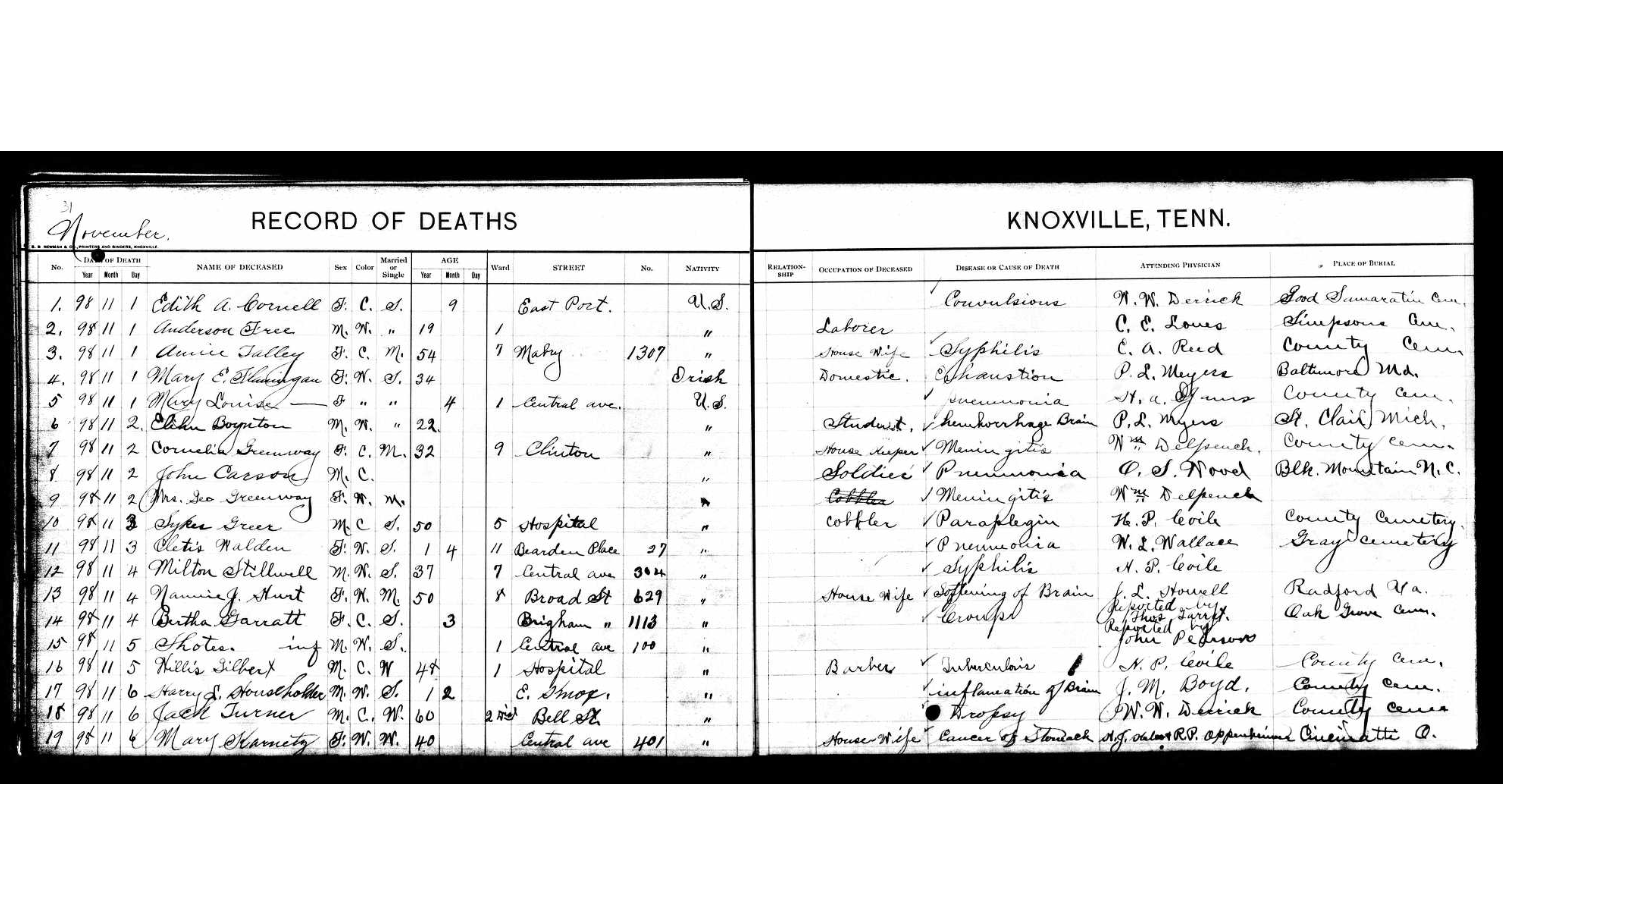 31
November.
RECORD OF DEATHS
KNOXVILLE, TENN.
DATE OF DEATH
AGE
No. Year Month Day NAME OF DECEASED Sex Color Married or Single Year Month Day Ward STREET No. NATIVITY RELATION-SHIP OCCUPATION OF DECEASED DISEASE OR CAUSE OF DEATH ATTENDING PHYSICIAN PLACE OF BURIAL
1. 98 11 1 Edith A. Cornell F. C. S. 9 East Port. U.S. Convulsions W. W. Derrick Good Sumaratin Cem.
2. 98 11 1 Anderson Free M. W. " 19 1 " Laborer C. E. Lones Simpsons Cem.
3. 98 11 1 Annie Talley F. C. M. 54 7 Mabry 1307 " House Wife Syphilis E. A. Reed County Cem.
4. 98 11 1 Mary E. Flannigan F. W. S. 34 Irish Domestic. Exhaustion P. L. Meyers Baltimore Md.
5 98 11 1 Mary Louise F " " 4 1 Central ave. U.S. pneumonia County Cem.
6 98 11 2. Elihu Boynton M. W. " 22. " Student. hemhorrhage Brain P. L. Myers St. Clair, Mich.
7 98 11 2 Cornelia Greenway F. C. M. 32 9 Clinton " House Keeper Meningitis Wm Delpeuch. County Cem.
8 98 11 2 John Carson M. C. " Soldier Pneumonia O. S. Wood Blk. Mountain N. C.
9 98 11 2 Mrs. Geo Greenway F. W. M. " Cobbler Meningitis Wm Delpeuch
10 98 11 3 Sykes Greer M C S. 50 5 Hospital " cobbler Paraplegia H. P. Coile County Cemetery.
11 98 11 3 Cletis Walden F. W. S. 1 4 11 Bearden Place 27 " Pneumonia W. L. Wallace Gray Cemetery
12 98 11 4 Milton Stillwell M. W. S. 37 7 Central ave 304 " Syphilis H. P. Coile
13 98 11 4 Nannie J. Hurt F. W. M. 50 8 Broad St 629 " House Wife Softening of Brain J. L. Howell Radford Va.
14 98 11 4 Bertha Garratt F. C. S. 3 Brigham " 1113 " Croup Reported by Thos Garrt. Oak Grove Cem.
15 98 11 5 Shotes. inf M. W. S. 1 Central ave 100 " Reported by John Pearson
16 98 11 5 Willis Gilbert M. C. W 48 1 Hospital " Barber Tuberculois H. P. Coile County Cem.
17 98 11 6 Harry L. Householder M. W. S. 1 2 E. " inflamation of Brain J. M. Boyd. County Cem.
18 98 11 6 Jack Turner M. C. W. 60 2nd Bell St. " Dropsy W. W. Derrick County Cem
19 98 11 6 Mary Karnetz F. W. W. 40 Central ave 401 " House Wife Cancer of Stomach R. P. Oppenheimer Cincinatti O.